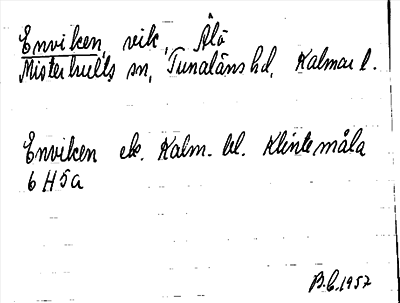 Enviken, vik, Älö
Misterhults sn, Tunaläns hd, Kalmar l.
Enviken ek. Kalm. bl. Klintemåla
6 H 5 a
B.C. 1957